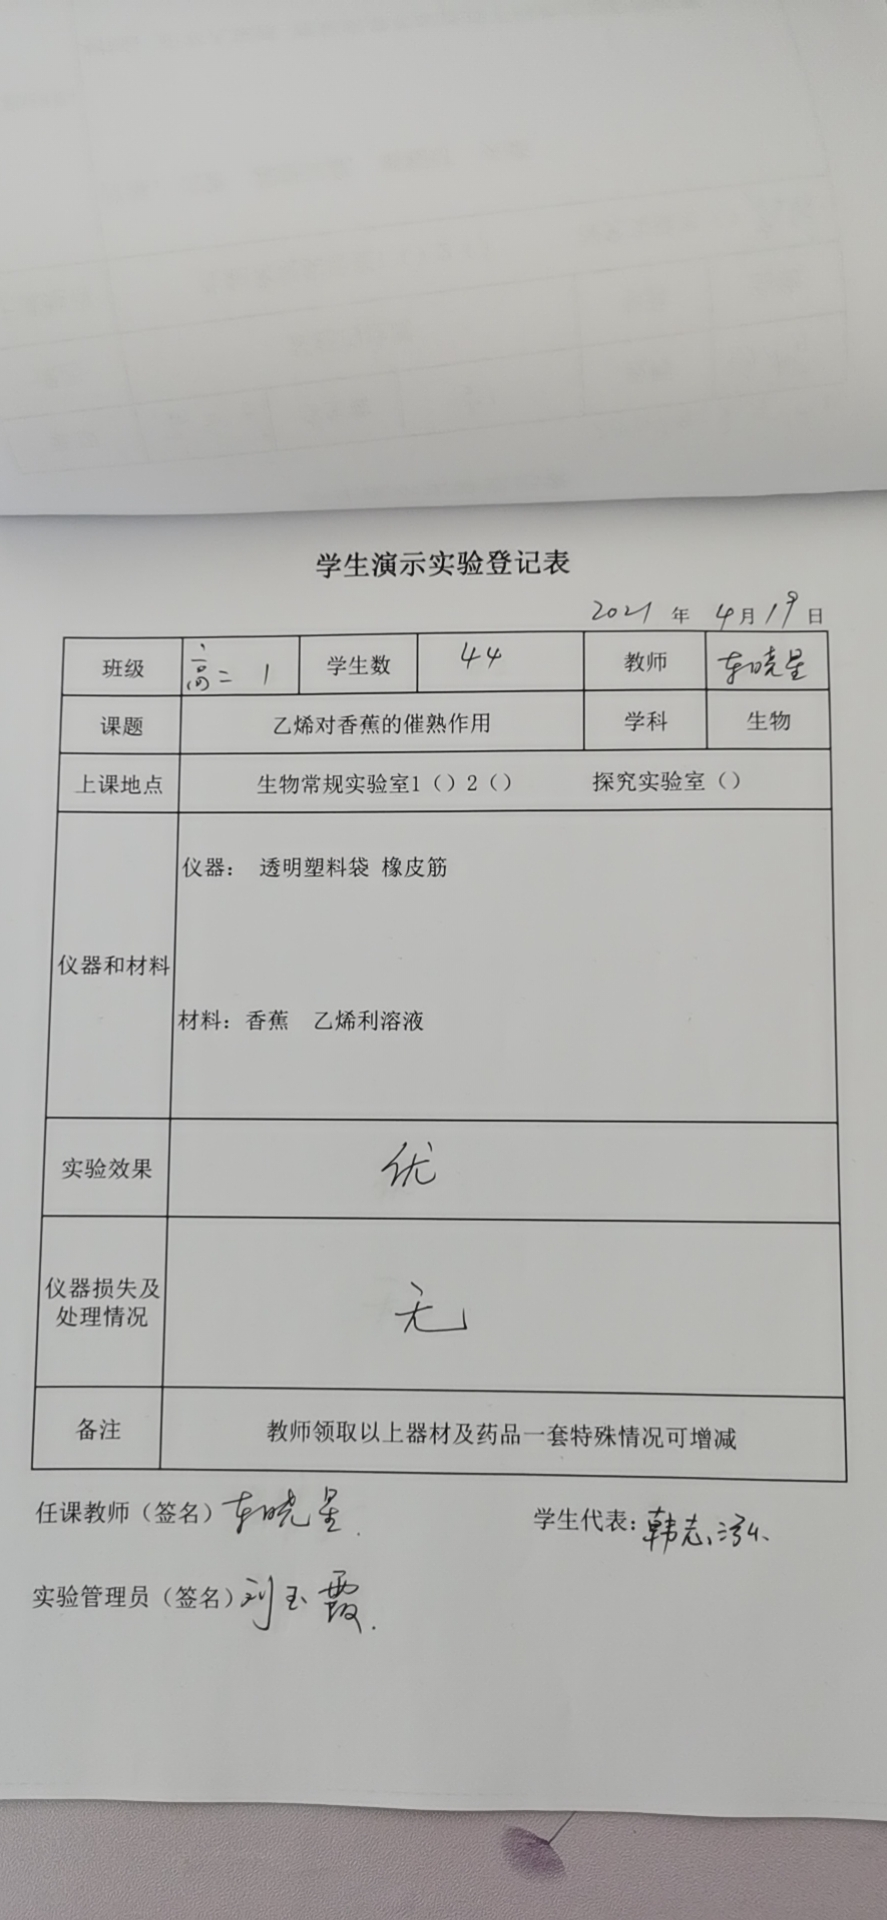 学生演示实验登记表
2021 年 4月19日
班级 高二 1 学生数 44 教师 车晓星
课题 乙烯对香蕉的催熟作用 学科 生物
上课地点 生物常规实验室1（）2（） 探究实验室（）
仪器和材料
仪器： 透明塑料袋 橡皮筋
材料：香蕉 乙烯利溶液
实验效果 优
仪器损失及
处理情况
无
备注 教师领取以上器材及药品一套特殊情况可增减
任课教师（签名）车晓星. 学生代表：韩志泓
实验管理员（签名）刘玉霞.